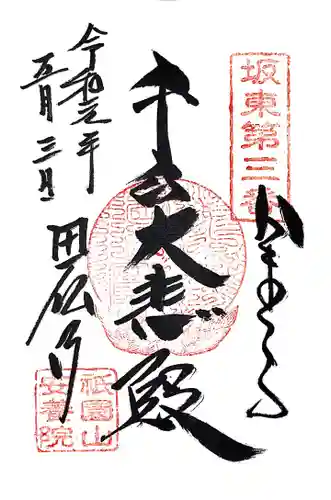 坂東第三番
かまくら
千手大悲殿
令和元年
五月三日
田代寺
祇園山
安養院